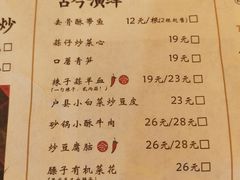 炒
去骨酥带鱼 12元/根(2根起售)
蒜仔炒菜心 19元
口蘑青笋 19元
辣子蒜羊血 19元/23元
户县小白菜炒豆皮 23元
砂锅小酥牛肉 26元/28元
炒豆腐脑 26元/28元
腰子有机菜花 26元